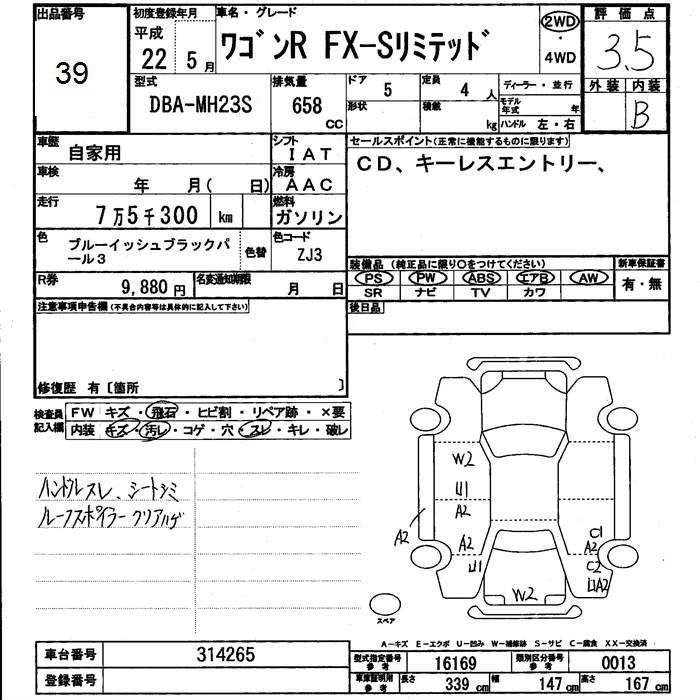 出品番号
39
初度登録年月
平成
22 5月
車名・グレード
ワゴンR FX-Sリミテッド
2WD
・
4WD
評価点
3.5
外装 内装
B
型式
DBA-MH23S
排気量
658 CC
ドア
5
形状
定員
4 人
積載
kg
ディーラー・並行
モデル年式 年
ハンドル 左・右
車歴
自家用
シフト
IAT
車検
年 月( 日)
冷房
AAC
走行
7万5千300 km
燃料
ガソリン
色
ブルーイッシュブラックパール3
色替
色コード
ZJ3
R券
9,880 円
名変通知期限
月 日
セールスポイント(正常に機能するものに限ります)
CD、キーレスエントリー、
装備品(純正品に限り○をつけてください)
PS PW ABS エアB AW
SR ナビ TV カワ
新車保証書
有・無
後日品
注意事項申告欄(不具合内容等は具体的に記入して下さい)
修復歴 有〔箇所 〕
検査員記入欄
FW キズ・飛石・ヒビ割・リペア跡・×要
内装 キズ・汚レ・コゲ・穴・スレ・キレ・破レ
ハンドルスレ、シートシミ
ルーフスポイラークリアハゲ
W2
U1
A2
A2
A2
U1
W2
C1
A2
C2
UA2
スペア
A-キズ E-エクボ U-凹み W-補修跡 S-サビ C-腐食 XX-交換済
車台番号 314265
登録番号
型式指定番号参考 16169
類別区分番号参考 0013
車庫証明用参考
長さ 339 cm 幅 147 cm 高さ 167 cm